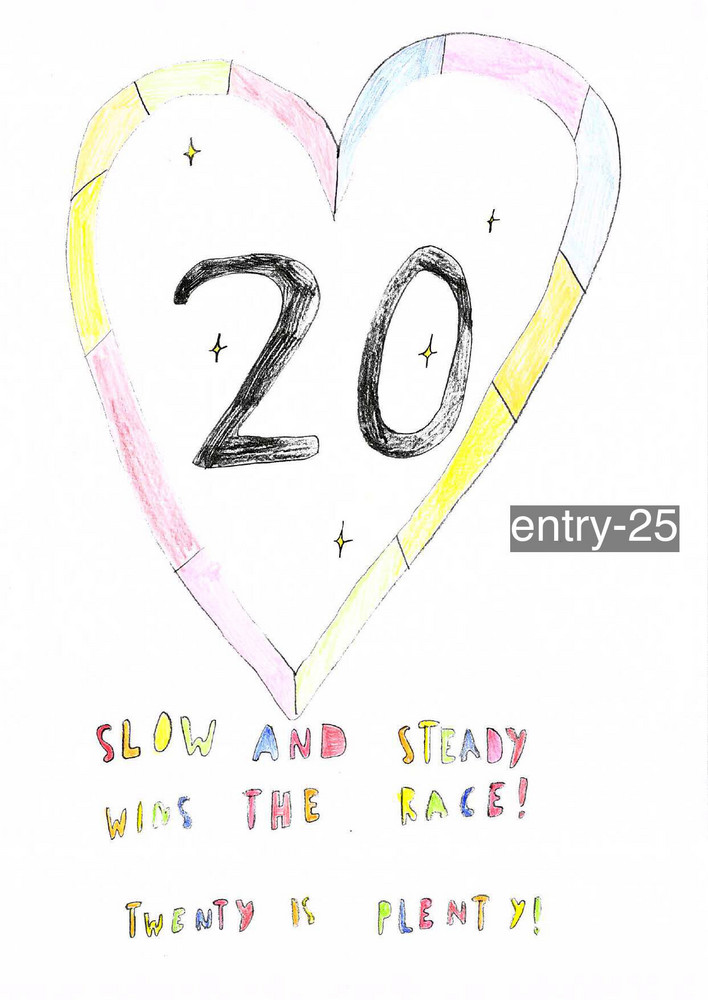 20
entry-25
SLOW AND STEADY
WINS THE RACE!
TWENTY IS PLENTY!